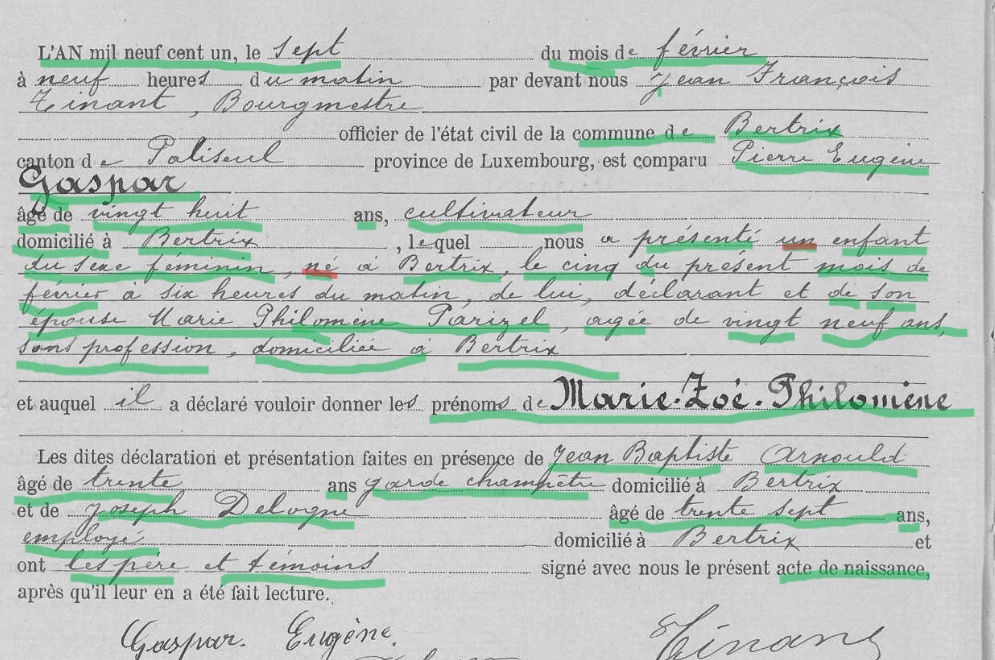 L'AN mil neuf cent un, le sept du mois de février
à neuf heures du matin par devant nous Jean François
Tinant, Bourgmestre
officier de l'état civil de la commune de Bertrix
canton de Paliseul province de Luxembourg, est comparu Pierre Eugène
Gaspar
âgé de vingt huit ans, cultivateur
domicilié à Bertrix, lequel nous a présenté un enfant
du sexe féminin, né à Bertrix, le cinq du présent mois de
février à six heures du matin, de lui, déclarant et de son
épouse Marie Philomène Parizel, agée de vingt neuf ans,
sans profession, domiciliée à Bertrix
et auquel il a déclaré vouloir donner les prénoms de Marie-Zoé-Philomène
Les dites déclaration et présentation faites en présence de Jean Baptiste Arnould
âgé de trente ans garde champêtre domicilié à Bertrix
et de Joseph Delogne âgé de trente sept ans,
employé domicilié à Bertrix et
ont les père et témoins signé avec nous le présent acte de naissance,
après qu'il leur en a été fait lecture.
Gaspar. Eugène. Tinant